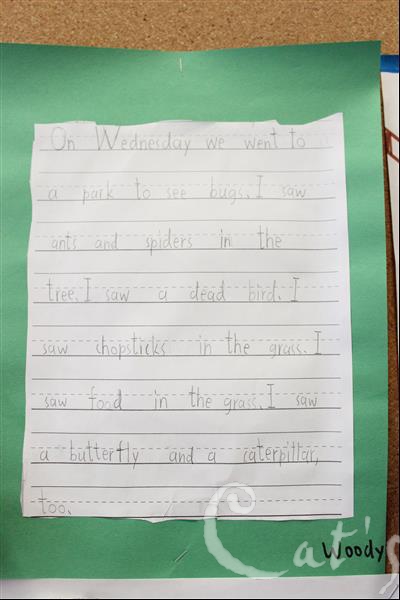 On Wednesday we went to
a park to see bugs. I saw
ants and spiders in the
tree. I saw a dead bird. I
saw chopsticks in the grass. I
saw food in the grass. I saw
a butterfly and a caterpillar,
too.
Cat's
Woody